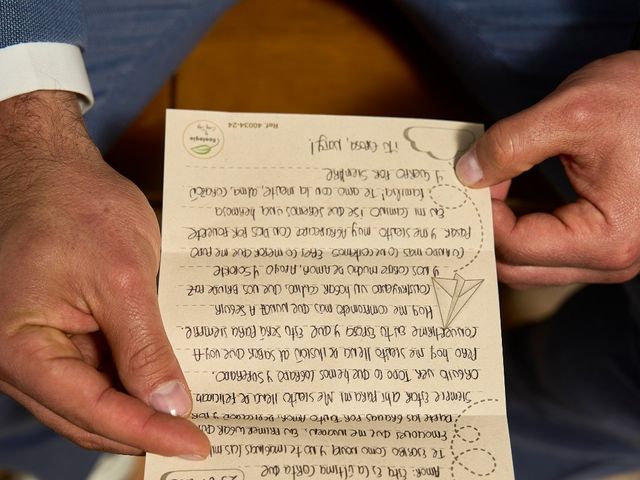 Amor: Esta es la última carta que
Te escribo como novia y no te imaginas las mil
Emociones que me invaden, en primer lugar
Darte las gracias por tanto amor, dedicación y por
Siempre estar ahí para mí. Me siento llena de felicidad
Orgullo ver todo lo que hemos logrado y superado.
Pero hoy me siento llena de ilusión al saber que voy a
Convertirme en tu esposa y que esto será para siempre.
Hoy me comprometo más que nunca a seguir
Construyendo un hogar, calma que nos brinde paz
y nos mucho de amor, apoyo y soporte
Cuando más lo necesitemos. Eres lo mejor que me pudo
Pasar y me siento muy agradecida con Dios por ponerte
En mi camino ¡Sé que seremos una hermosa
familia! Te amo con la mente, alma, corazón
y por siempre
¡Tu esposa, Dary!
Ref. 40034-24
Ecología